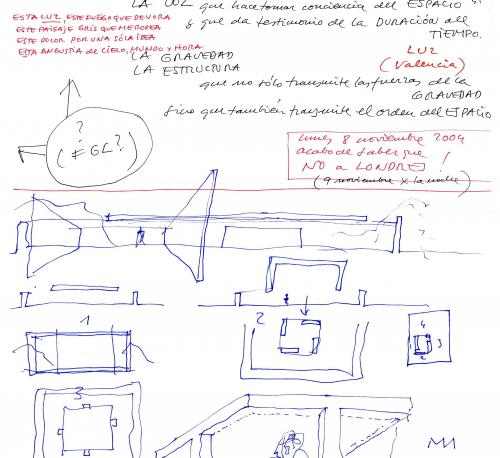 LA LUZ que hace tomar conciencia del ESPACIO
y que da testimonio de la DURACIÓN del
TIEMPO.
ESTA LUZ, ESTE FUEGO QUE DEVORA
ESTE PAISAJE GRIS QUE ME RODEA
ESTE DOLOR POR UNA SÓLA IDEA
ESTA ANGUSTIA de CIELO, MUNDO y HORA
LUZ
(Valencia)
LA GRAVEDAD
LA ESTRUCTURA
que no sólo transmite las fuerzas de la
GRAVEDAD
sino que también transmite el orden del ESPACIO
?
lunes 8 noviembre 2004
acabo de saber que
NO a LONDRES!
(9 noviembre x la noche)
1
2
4
1
3
2
3